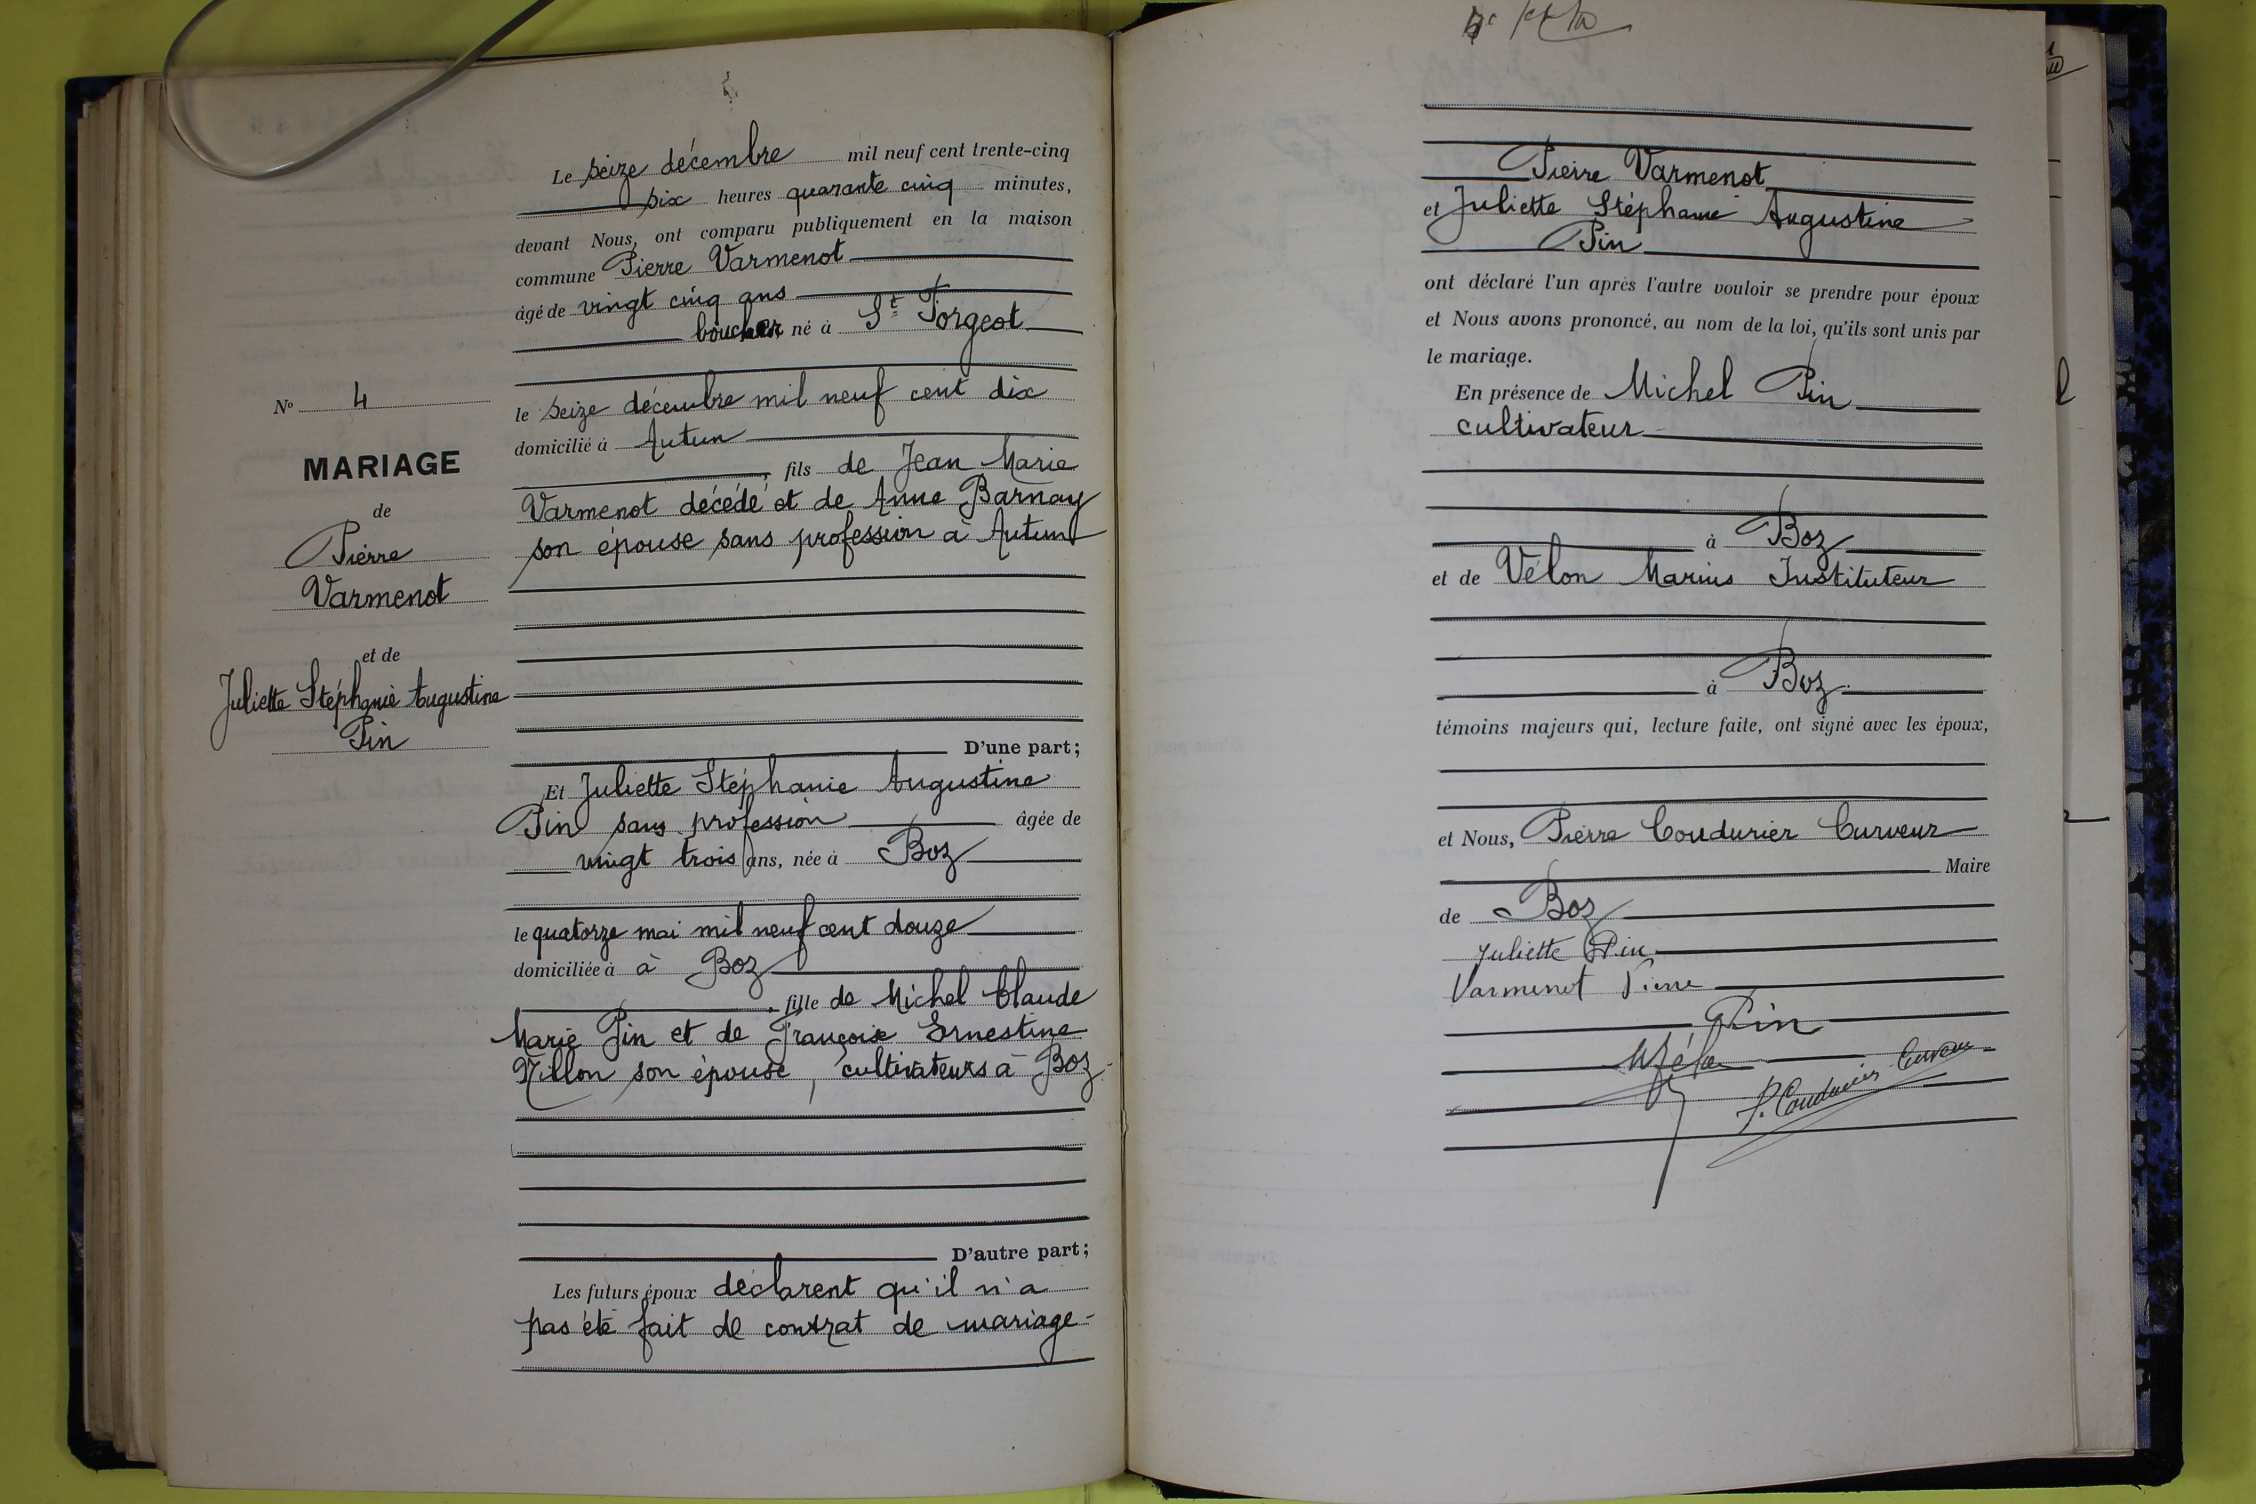 Le seize décembre mil neuf cent trente-cinq
six heures quarante cinq minutes,
devant Nous, ont comparu publiquement en la maison
commune Pierre Varmenot
âgé de vingt cinq ans
boucher né à St Forgeot
le seize décembre mil neuf cent dix
domicilié à Autun
, fils de Jean Marie
Varmenot décédé et de Anne Barnay
son épouse sans profession à Autun
No 4
MARIAGE
de
Pierre
Varmenot
et de
Juliette Stéphanie Augustine
Pin
D'une part;
Et Juliette Stéphanie Augustine
Pin sans profession âgée de
vingt trois ans, née à Boz
le quatorze mai mil neuf cent douze
domiciliée à à Boz
, fille de Michel Claude
Marie Pin et de Françoise Ernestine
Villon son épouse, cultivateurs à Boz
D'autre part;
Les futurs époux déclarent qu'il n'a
pas été fait de contrat de mariage
Pierre Varmenot
et Juliette Stéphanie Augustine
Pin
ont déclaré l'un après l'autre vouloir se prendre pour époux
et Nous avons prononcé, au nom de la loi, qu'ils sont unis par
le mariage.
En présence de Michel Pin
cultivateur
à Boz
et de Vélon Marius Instituteur
à Boz
témoins majeurs qui, lecture faite, ont signé avec les époux,
et Nous, Pierre Coudurier Curveur
Maire
de Boz
Juliette Pin
Varmenot Pierre
Pin
P. Coudurier Curveur